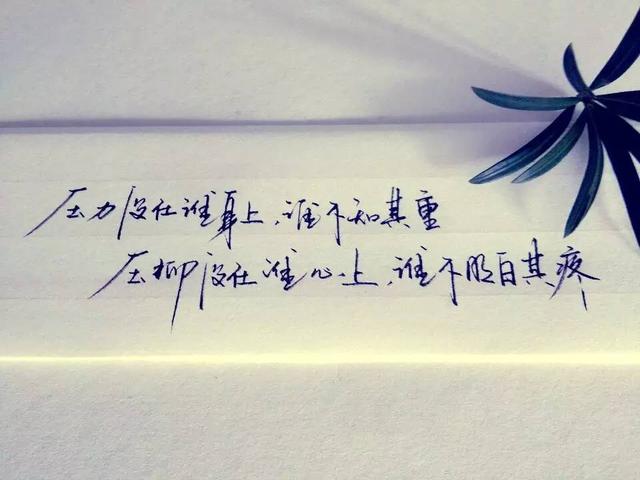 压力没在谁身上，谁不知其重
压抑没在谁心上，谁不明白其疼